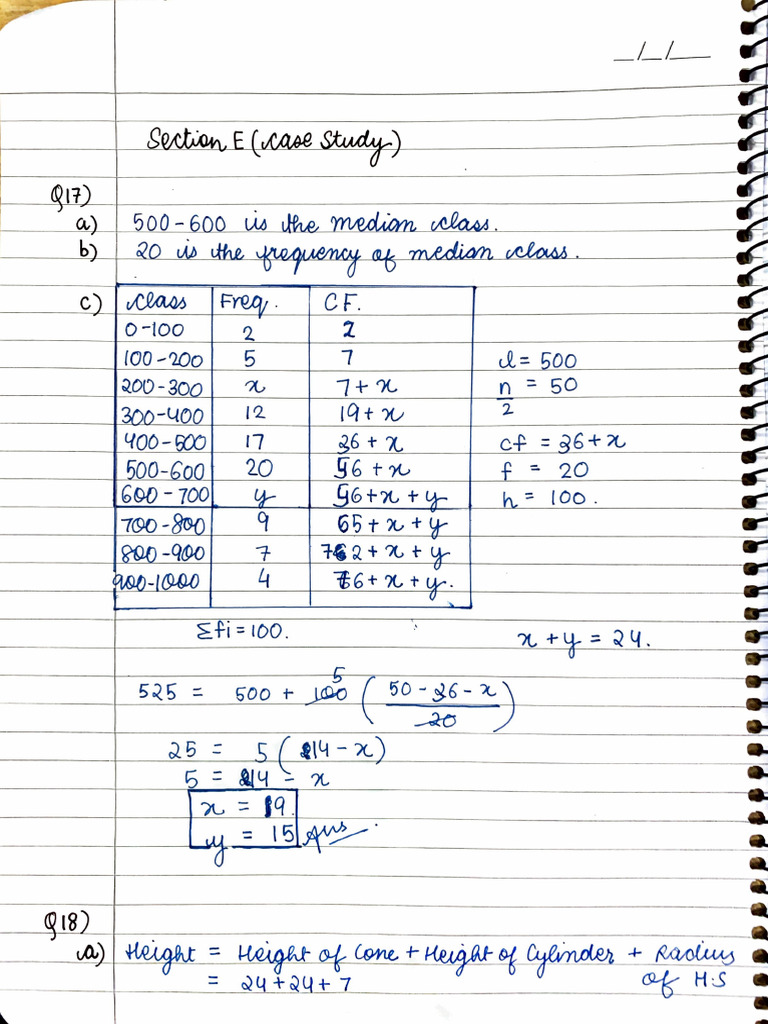 _/_/_
Section E (Case Study)
Q17)
a) 500-600 is the median class.
b) 20 is the frequency of median class.
c) Class Freq. CF.
0-100 2 2
100-200 5 7
l = 500
200-300 x 7+x
n/2 = 50
300-400 12 19+x
400-500 17 36+x
cf = 36+x
500-600 20 56+x
f = 20
600-700 y 56+x+y
h = 100.
700-800 9 65+x+y
800-900 7 72+x+y
900-1000 4 76+x+y.
Σfi = 100.
x+y = 24.
525 = 500 + 100 5 (50-36-x / 20)
25 = 5 (14-x)
5 = 14 - x
x = 9.
y = 15 Ans.
Q18)
a) Height = Height of Cone + Height of Cylinder + Radius
= 24+24+7 of H.S